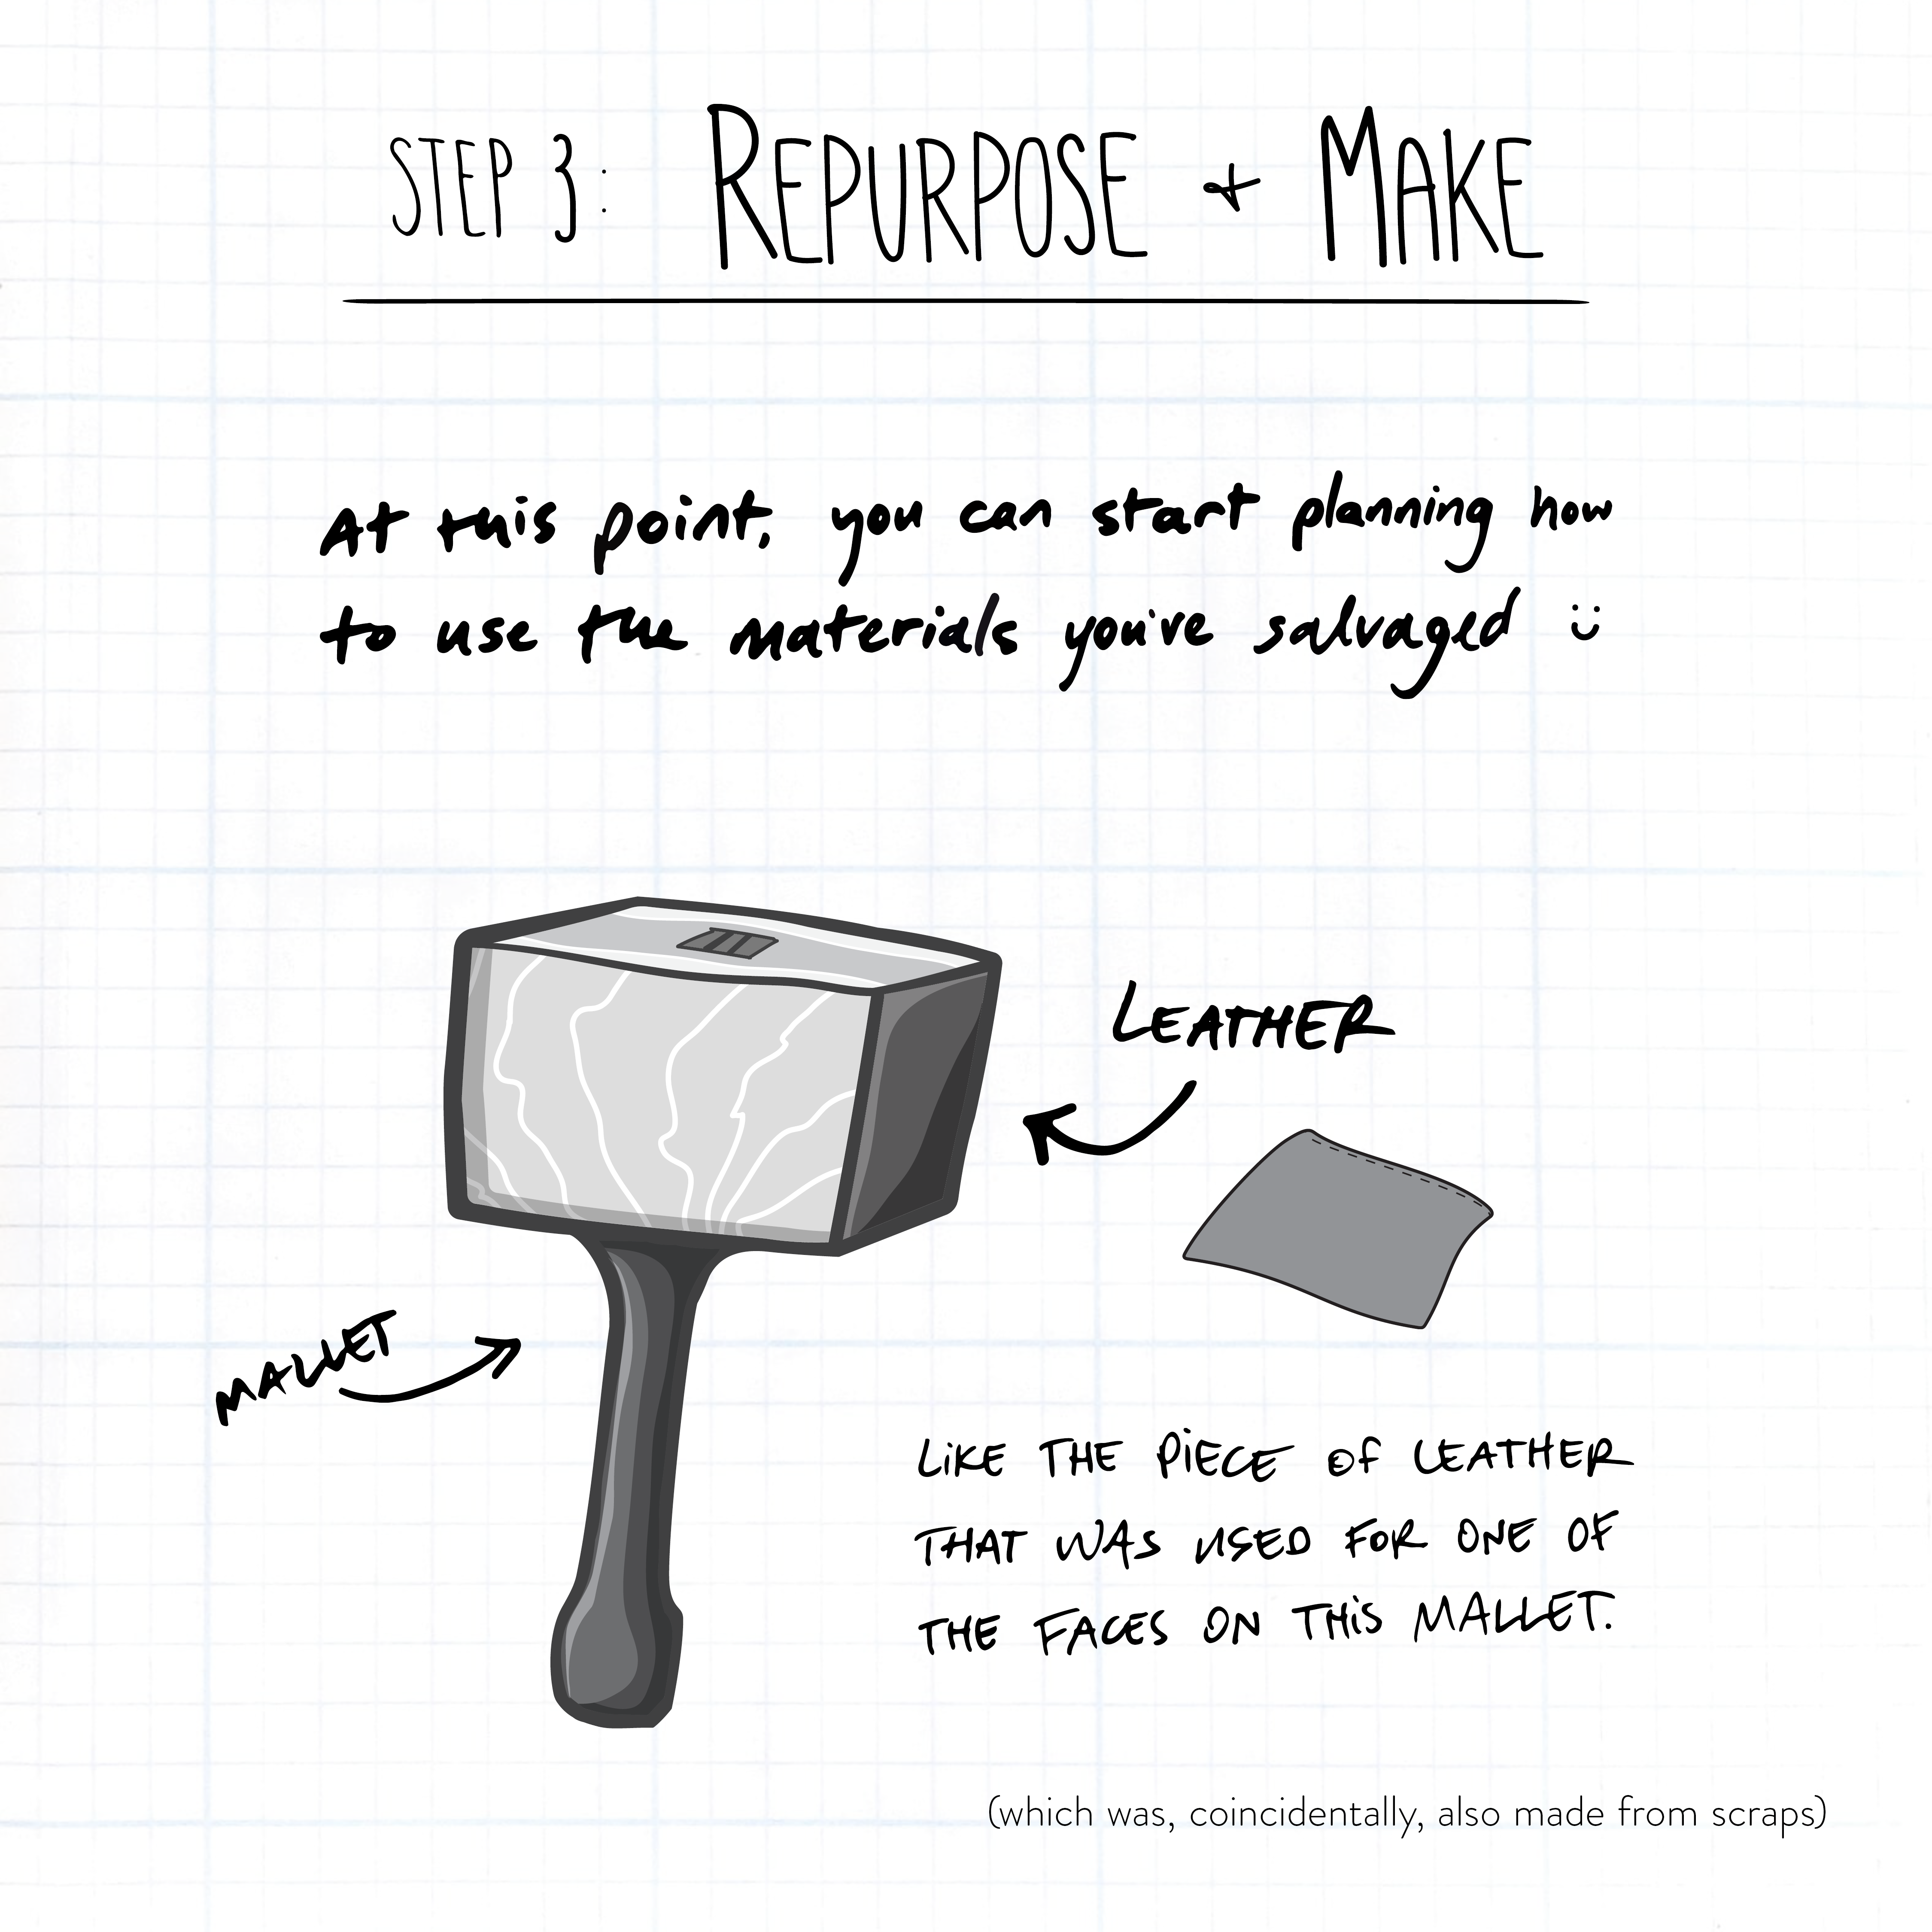 STEP 3: REPURPOSE + MAKE
At this point, you can start planning how
to use the materials you've salvaged :)
LEATHER
MALLET
LIKE THE PIECE OF LEATHER
THAT WAS USED FOR ONE OF
THE FACES ON THIS MALLET.
(which was, coincidentally, also made from scraps)